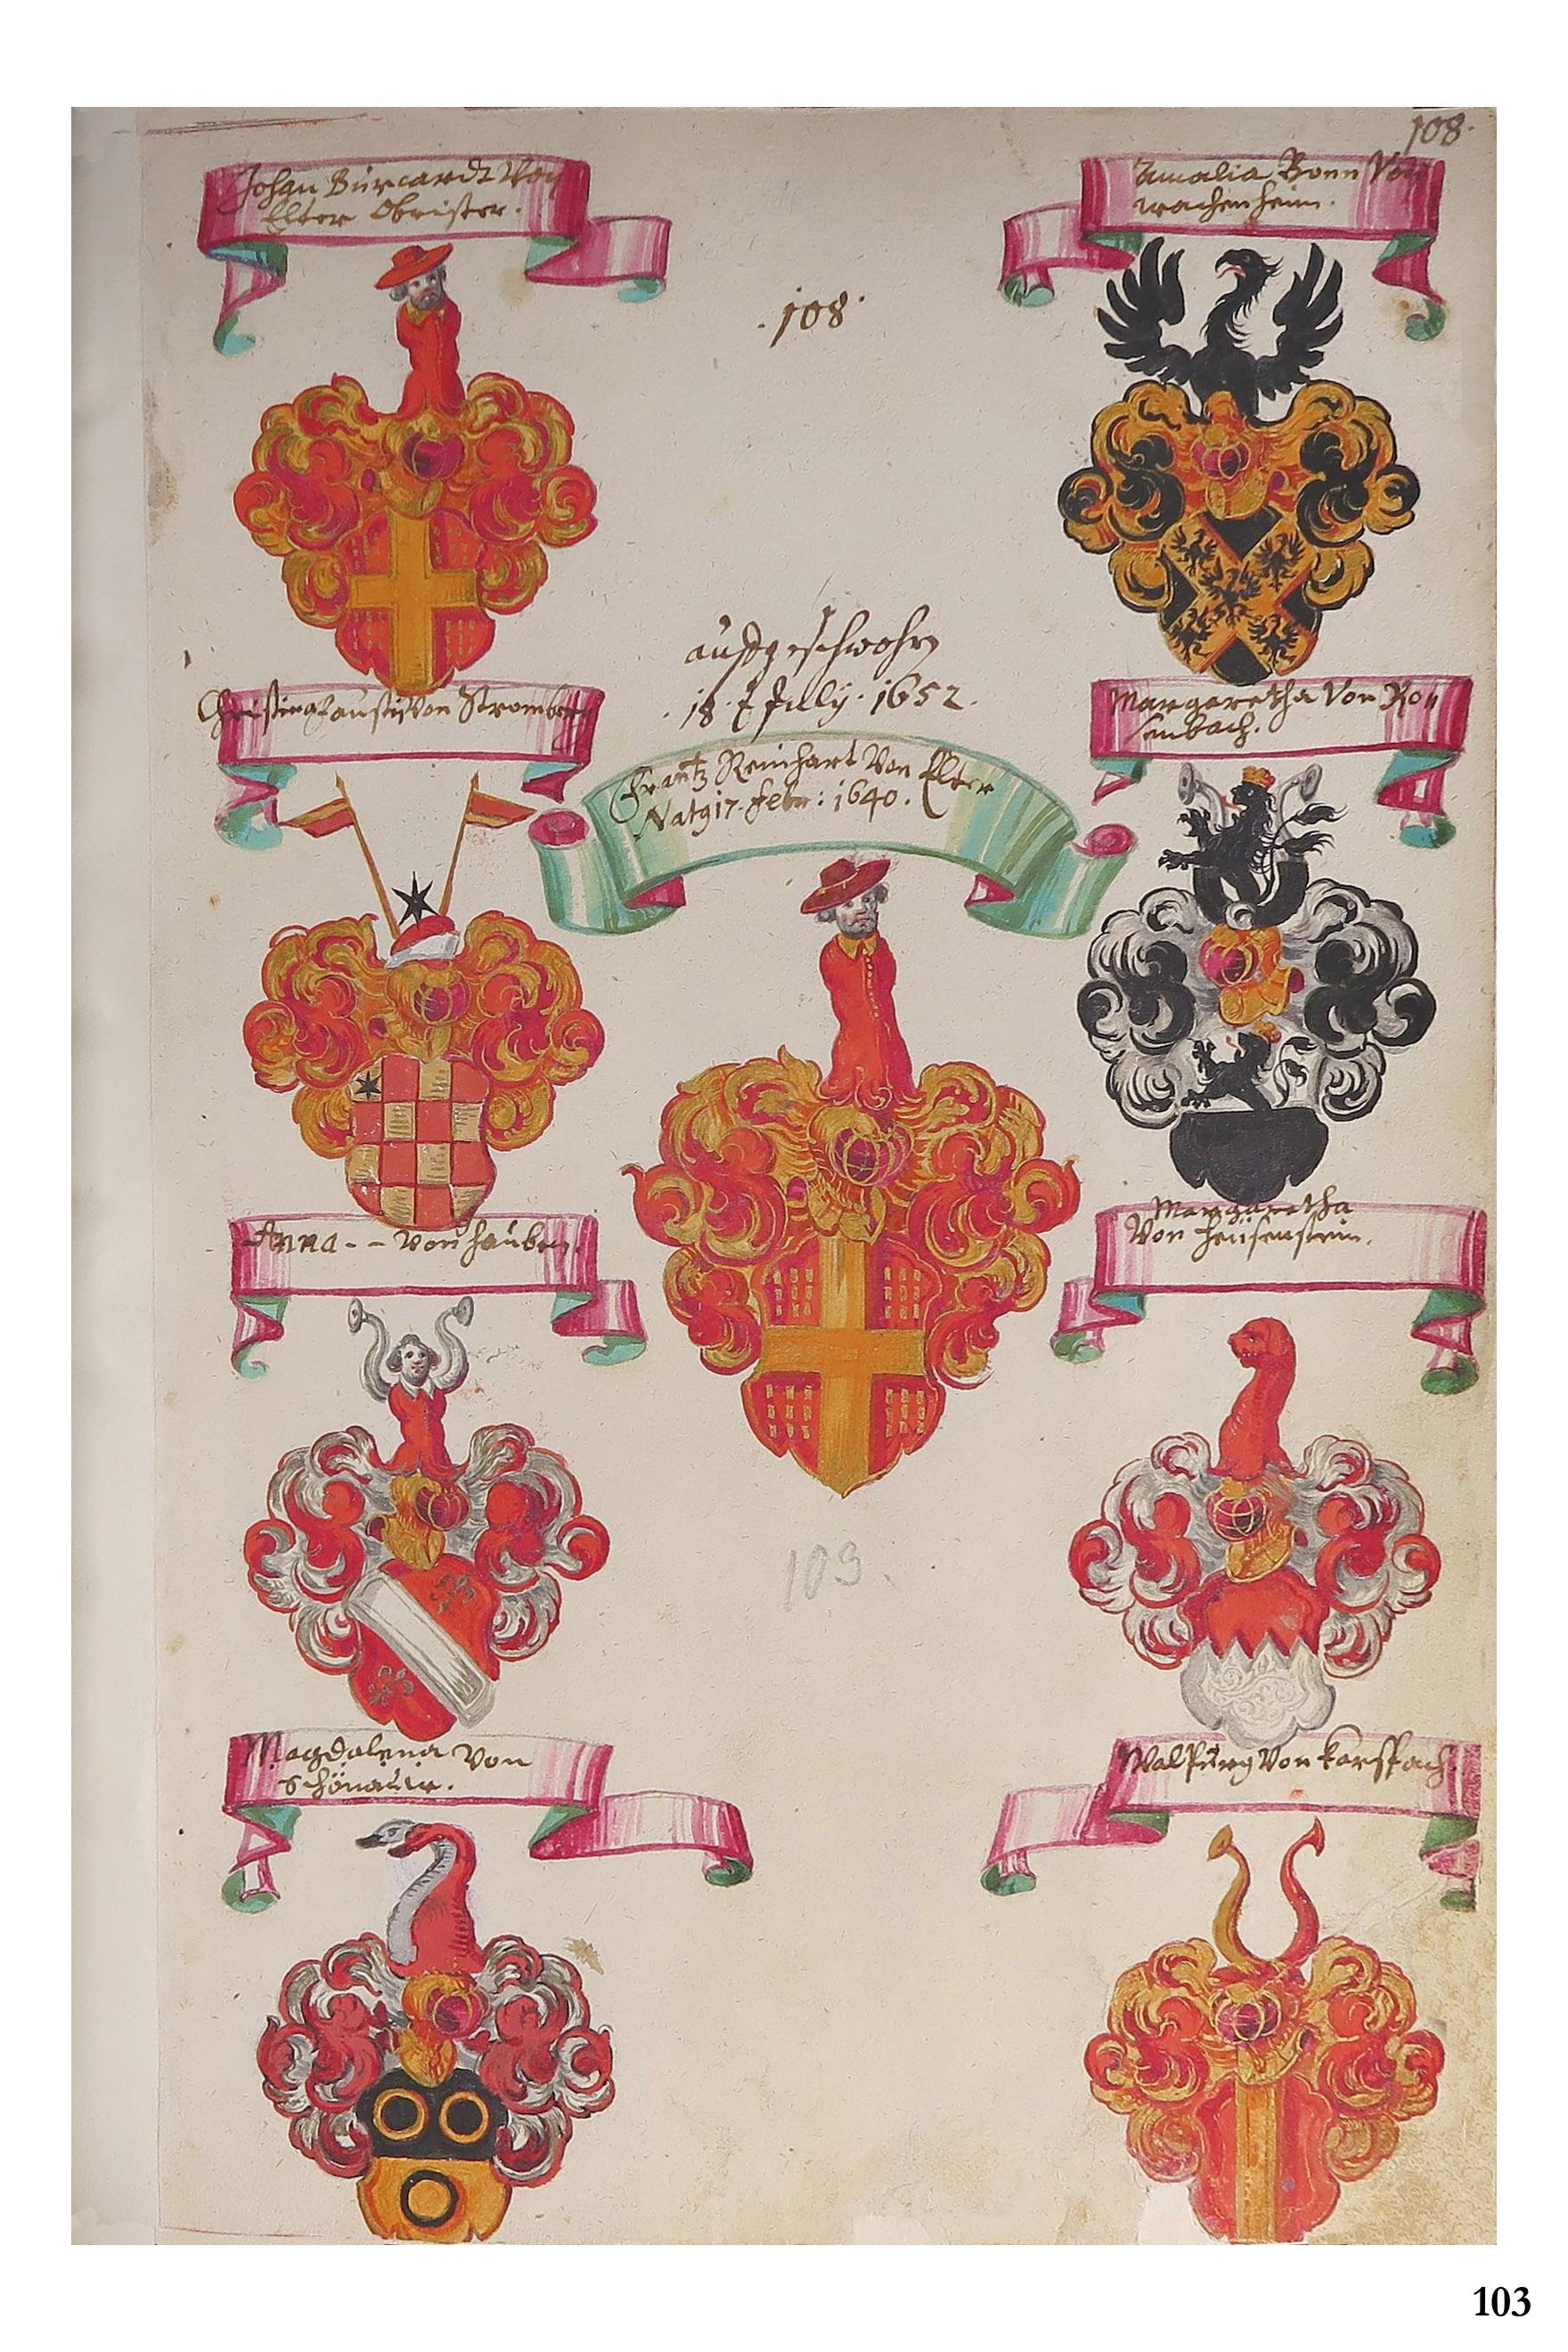 108.
Johan Burcardt Von
Elter Obrister.
Amalia Bonn Von
wachenheim.
.108.
außgeschwohrn
.18. Jully. 1652.
Christina faustis Von Stromberg
Margaretha Von Ro
senbach.
Frantz Reinhart Von Elter
Nat9 17. febr: 1640.
Anna - - von hauben.
Margaretha
Von heüsenstein.
103.
Magdalena von
Schönauw.
Walpurg Von Kerspach.
103